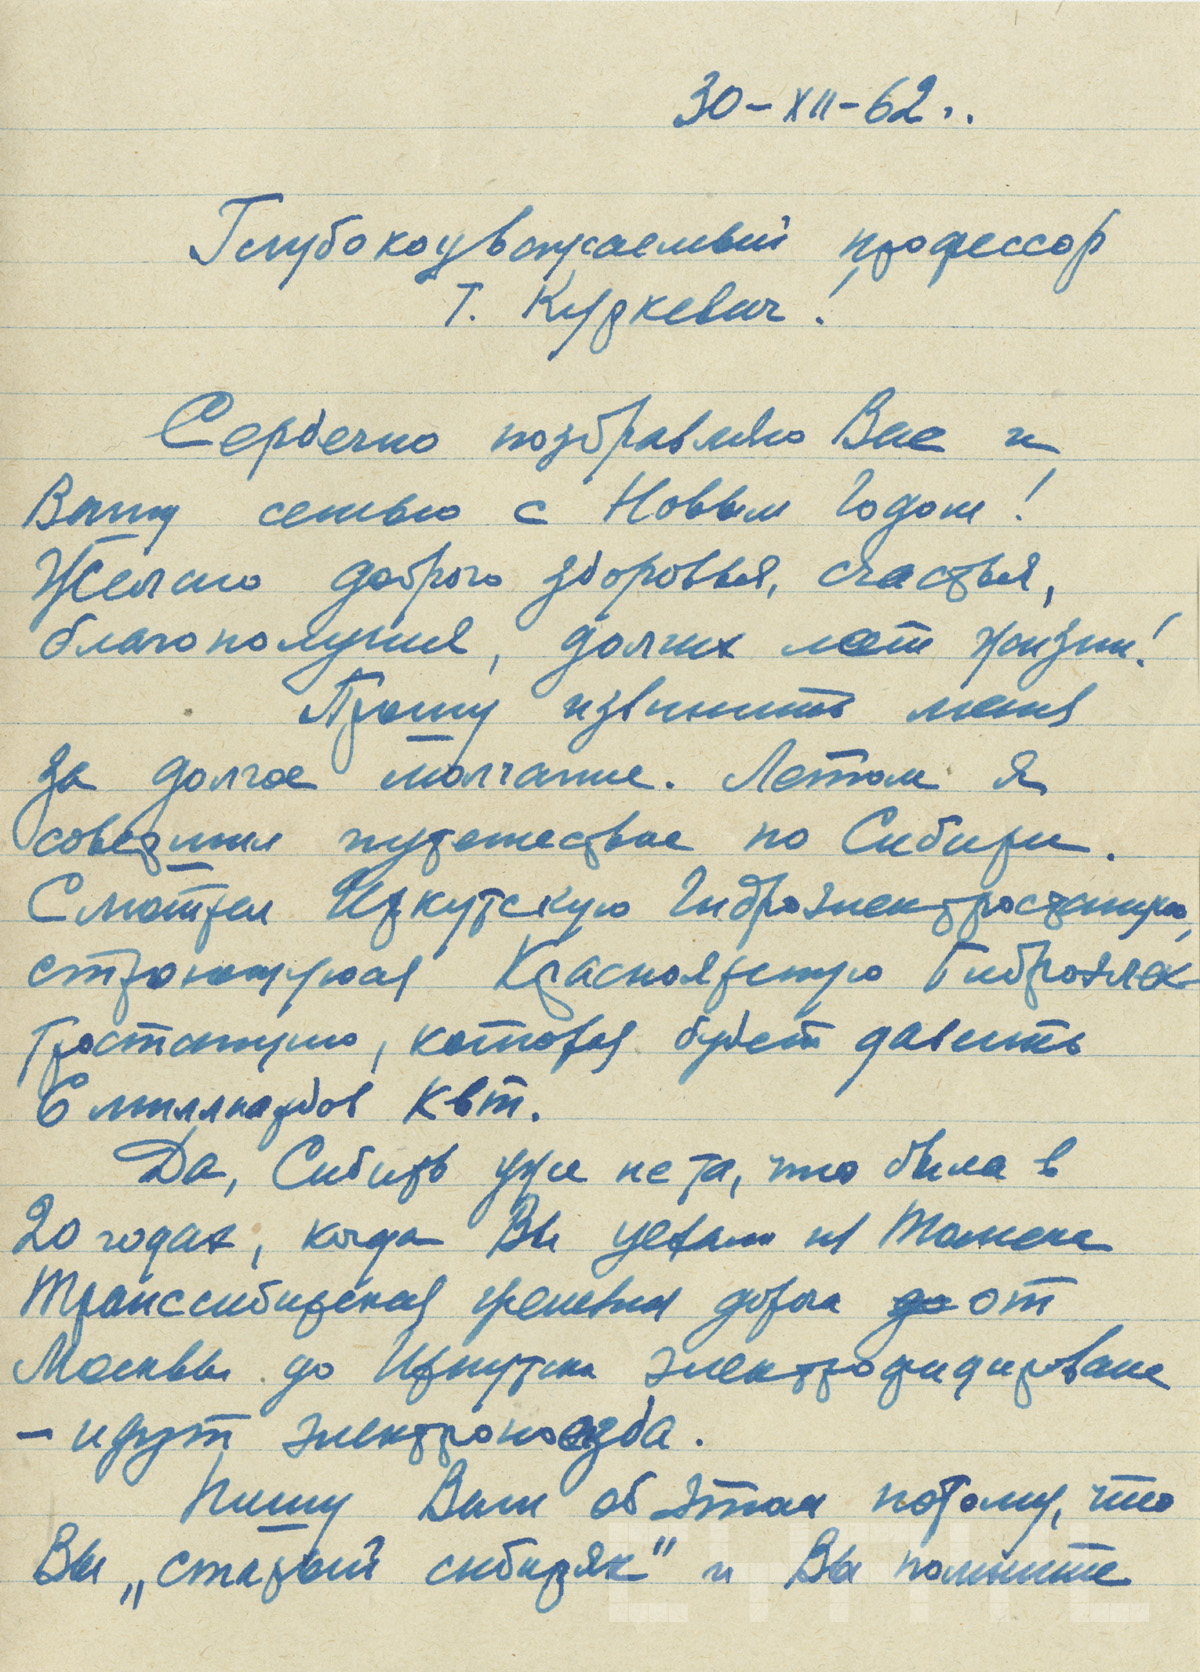 30-XII-62 г.
Глубокоуважаемый профессор
т. Куркевич!
Сердечно поздравляю Вас и
Вашу семью с Новым Годом!
Желаю доброго здоровья, счастья,
благополучия, долгих лет жизни!
Прошу извинить меня
за долгое молчание. Летом я
совершил путешествие по Сибири.
Смотрел Иркутскую Гидроэлектростанцию,
строющуюся Красноярскую Гидроэлек-
тростанцию, которая будет давать
6 миллиардов квт.
Да, Сибирь уже не та, что была в
20 годах, когда Вы уехали из Томска
Транссибирская железная дорога до от
Москвы до Иркутска электрофицирована
- идут электропоезда.
Пишу Вам об этом потому, что
Вы „старый сибиряк" и Вы помните